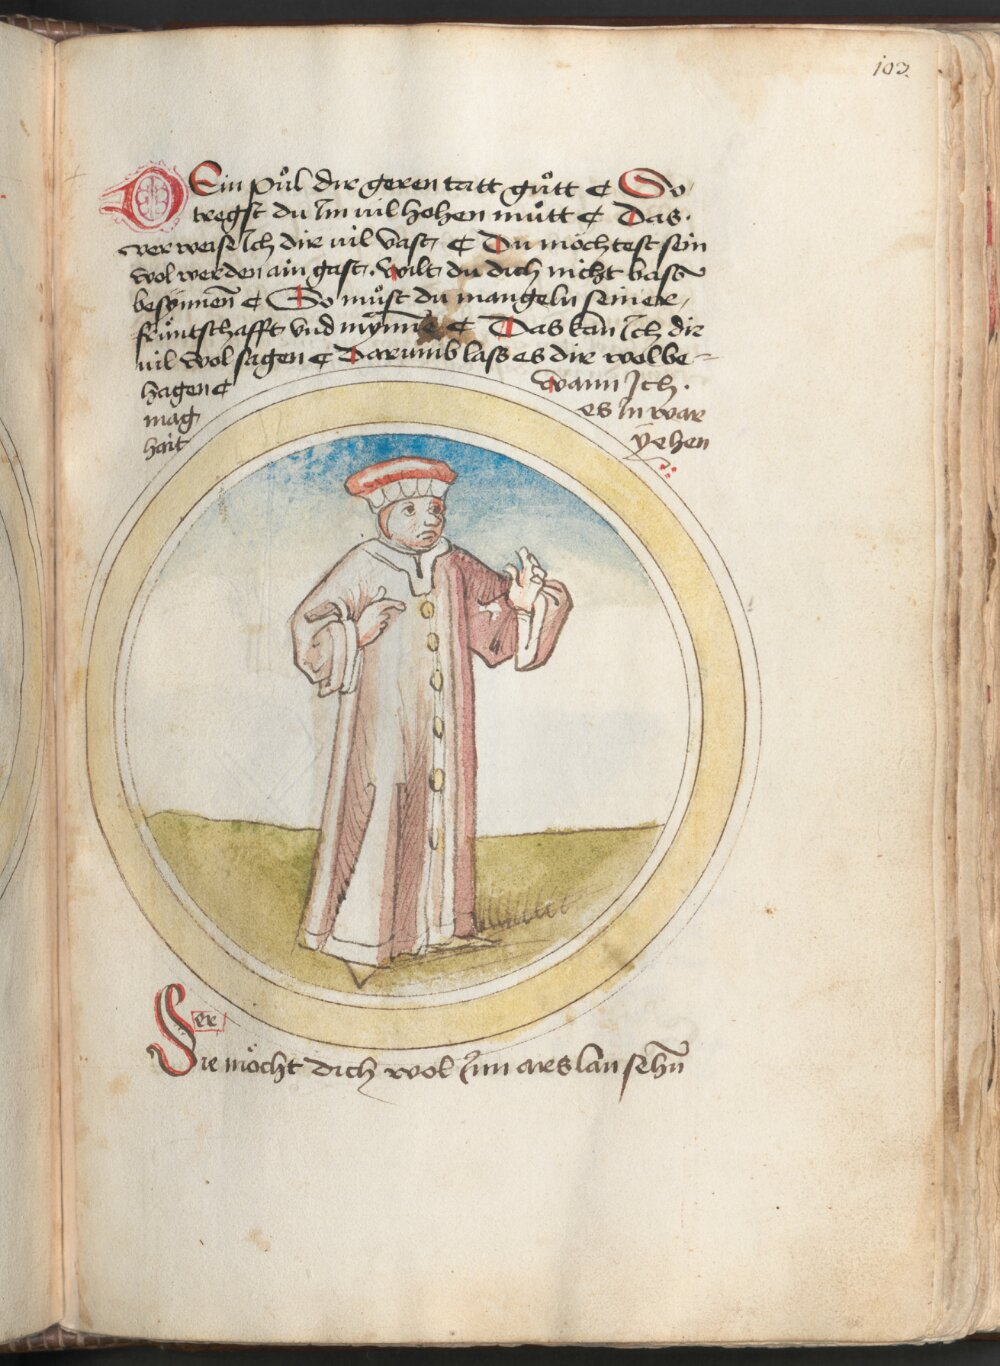 103
DEin půl dir geren tatt gůtt ¢ So
tregst du Im vil hohen můtt ¢ Das.
verweise Ich dir vil vast ¢ Du möchtest sein
wol werden ain gast. wilt du dich nicht bass
besynnen̄ ¢ So můst du mangeln seiner
früntschafft vnd mynne ¢ Das kan Ich dir
vil wol sagen ¢ Darumb lass es dir wol be-
hagen ¢ wann Ich.
mag es In war
hait yehen
Ser
Sie möcht dich wol Inn ars lan sehn̄